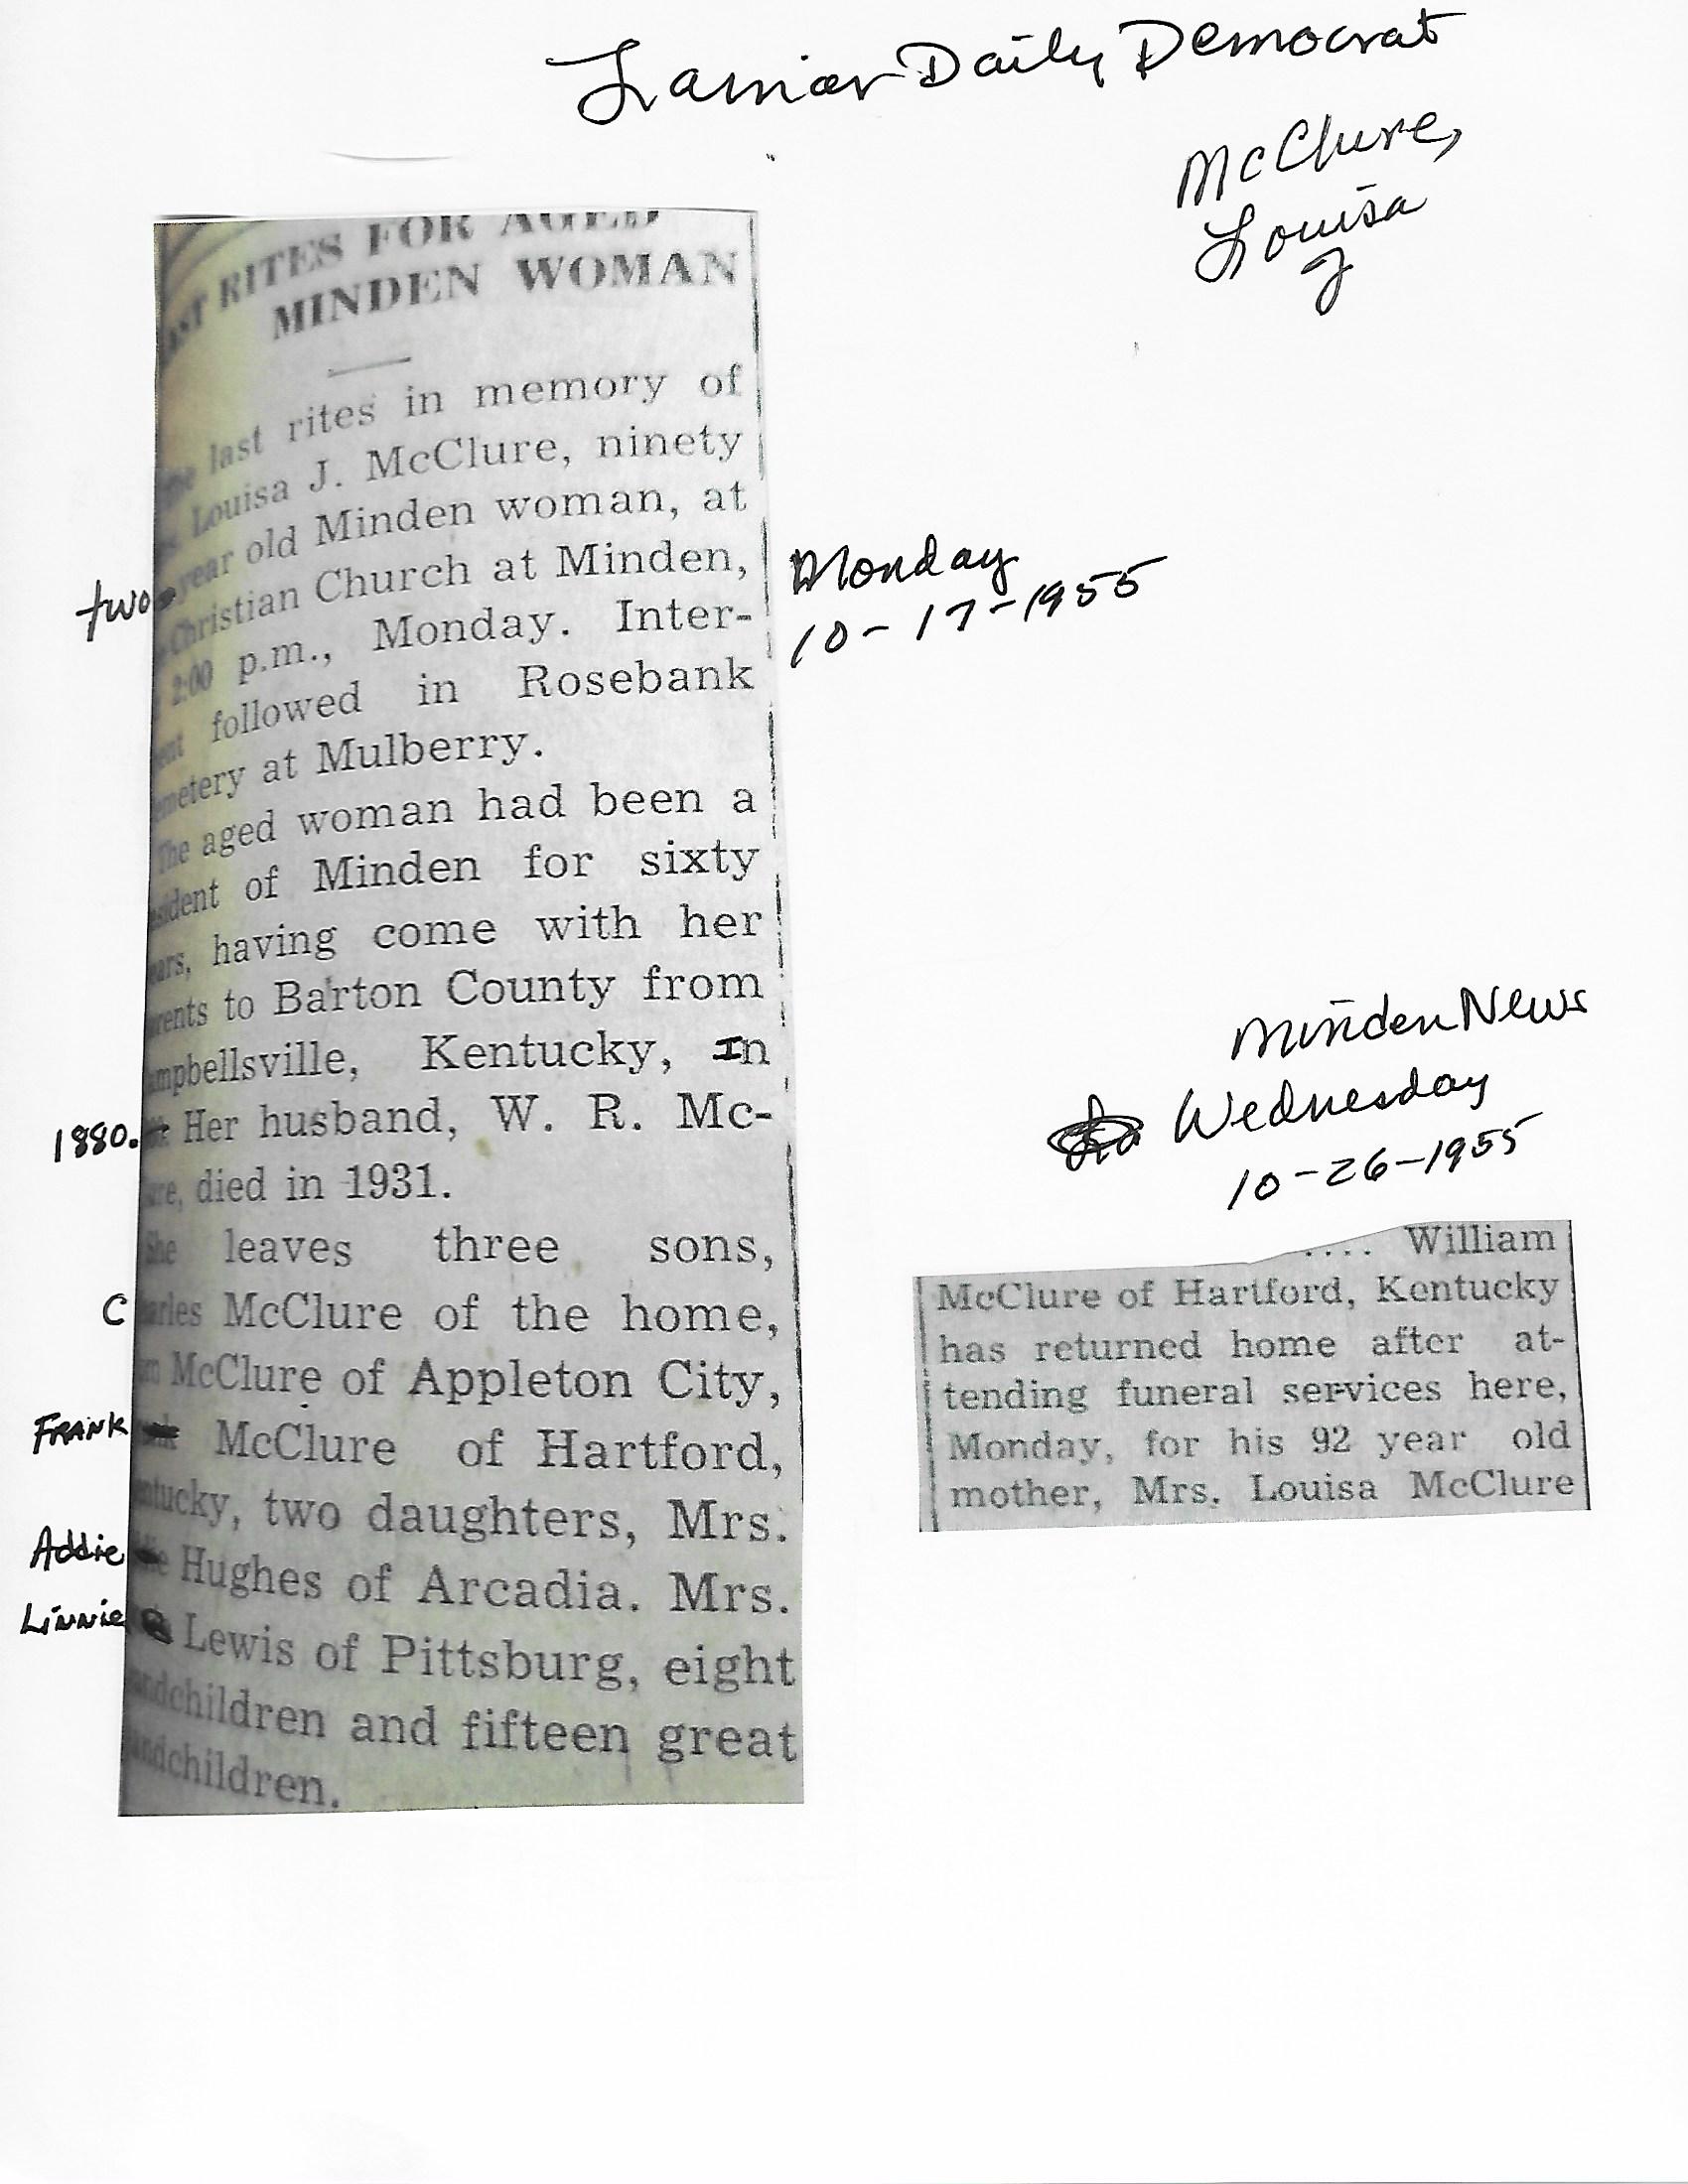 Lamar Daily Democrat
McClure,
Louisa
J
ST RITES FOR AGED
MINDEN WOMAN
last rites in memory of
Louisa J. McClure, ninety
two year old Minden woman, at
Christian Church at Minden,
2:00 p.m., Monday. Inter-
ent followed in Rosebank
metery at Mulberry.
The aged woman had been a
sident of Minden for sixty
ars, having come with her
rents to Barton County from
mpbellsville, Kentucky, In
1880. Her husband, W. R. Mc-
re, died in 1931.
She leaves three sons,
Charles McClure of the home,
m McClure of Appleton City,
FRANK McClure of Hartford,
ntucky, two daughters, Mrs.
Addie Hughes of Arcadia. Mrs.
Linnie Lewis of Pittsburg, eight
andchildren and fifteen great
andchildren.
Monday
10-17-1955
Minden News
Wednesday
10-26-1955
.... William
McClure of Hartford, Kentucky
has returned home after at-
tending funeral services here,
Monday, for his 92 year old
mother, Mrs. Louisa McClure